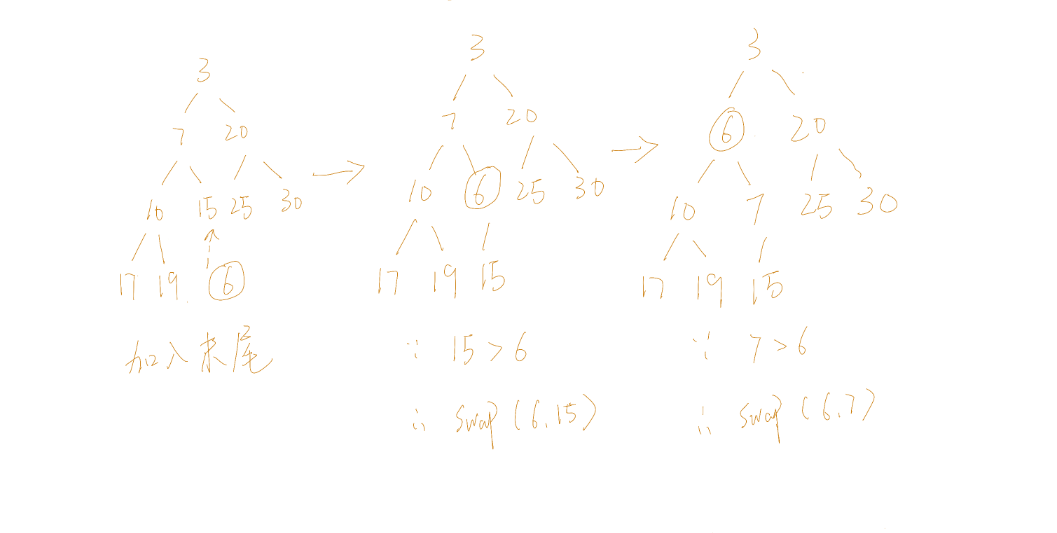 3
7 20
10 15 25 30
17 19 6
加入末尾
3
7 20
10 6 25 30
17 19 15
∵ 15>6
∴ swap(6,15)
3
6 20
10 7 25 30
17 19 15
∵ 7>6
∴ swap(6,7)